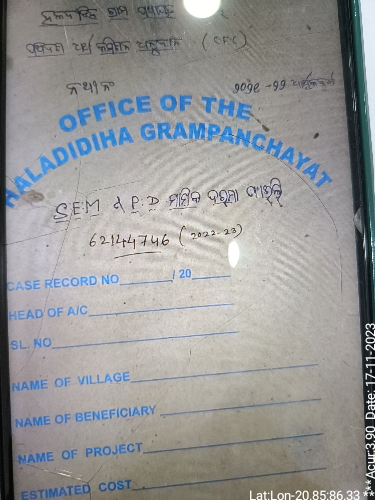 OFFICE OF THE
HALADIDIHA GRAMPANCHAYAT
S.E.M & P.D ମାସିକ ଦରମା ଫାଇଲ୍
62144746 (2022-23)
CASE RECORD NO / 20
HEAD OF A/C
SL. NO
NAME OF VILLAGE
NAME OF BENEFICIARY
NAME OF PROJECT
ESTIMATED COST
Lat:Lon-20.85:86.33
***Acur:3.90 Date: 17-11-2023